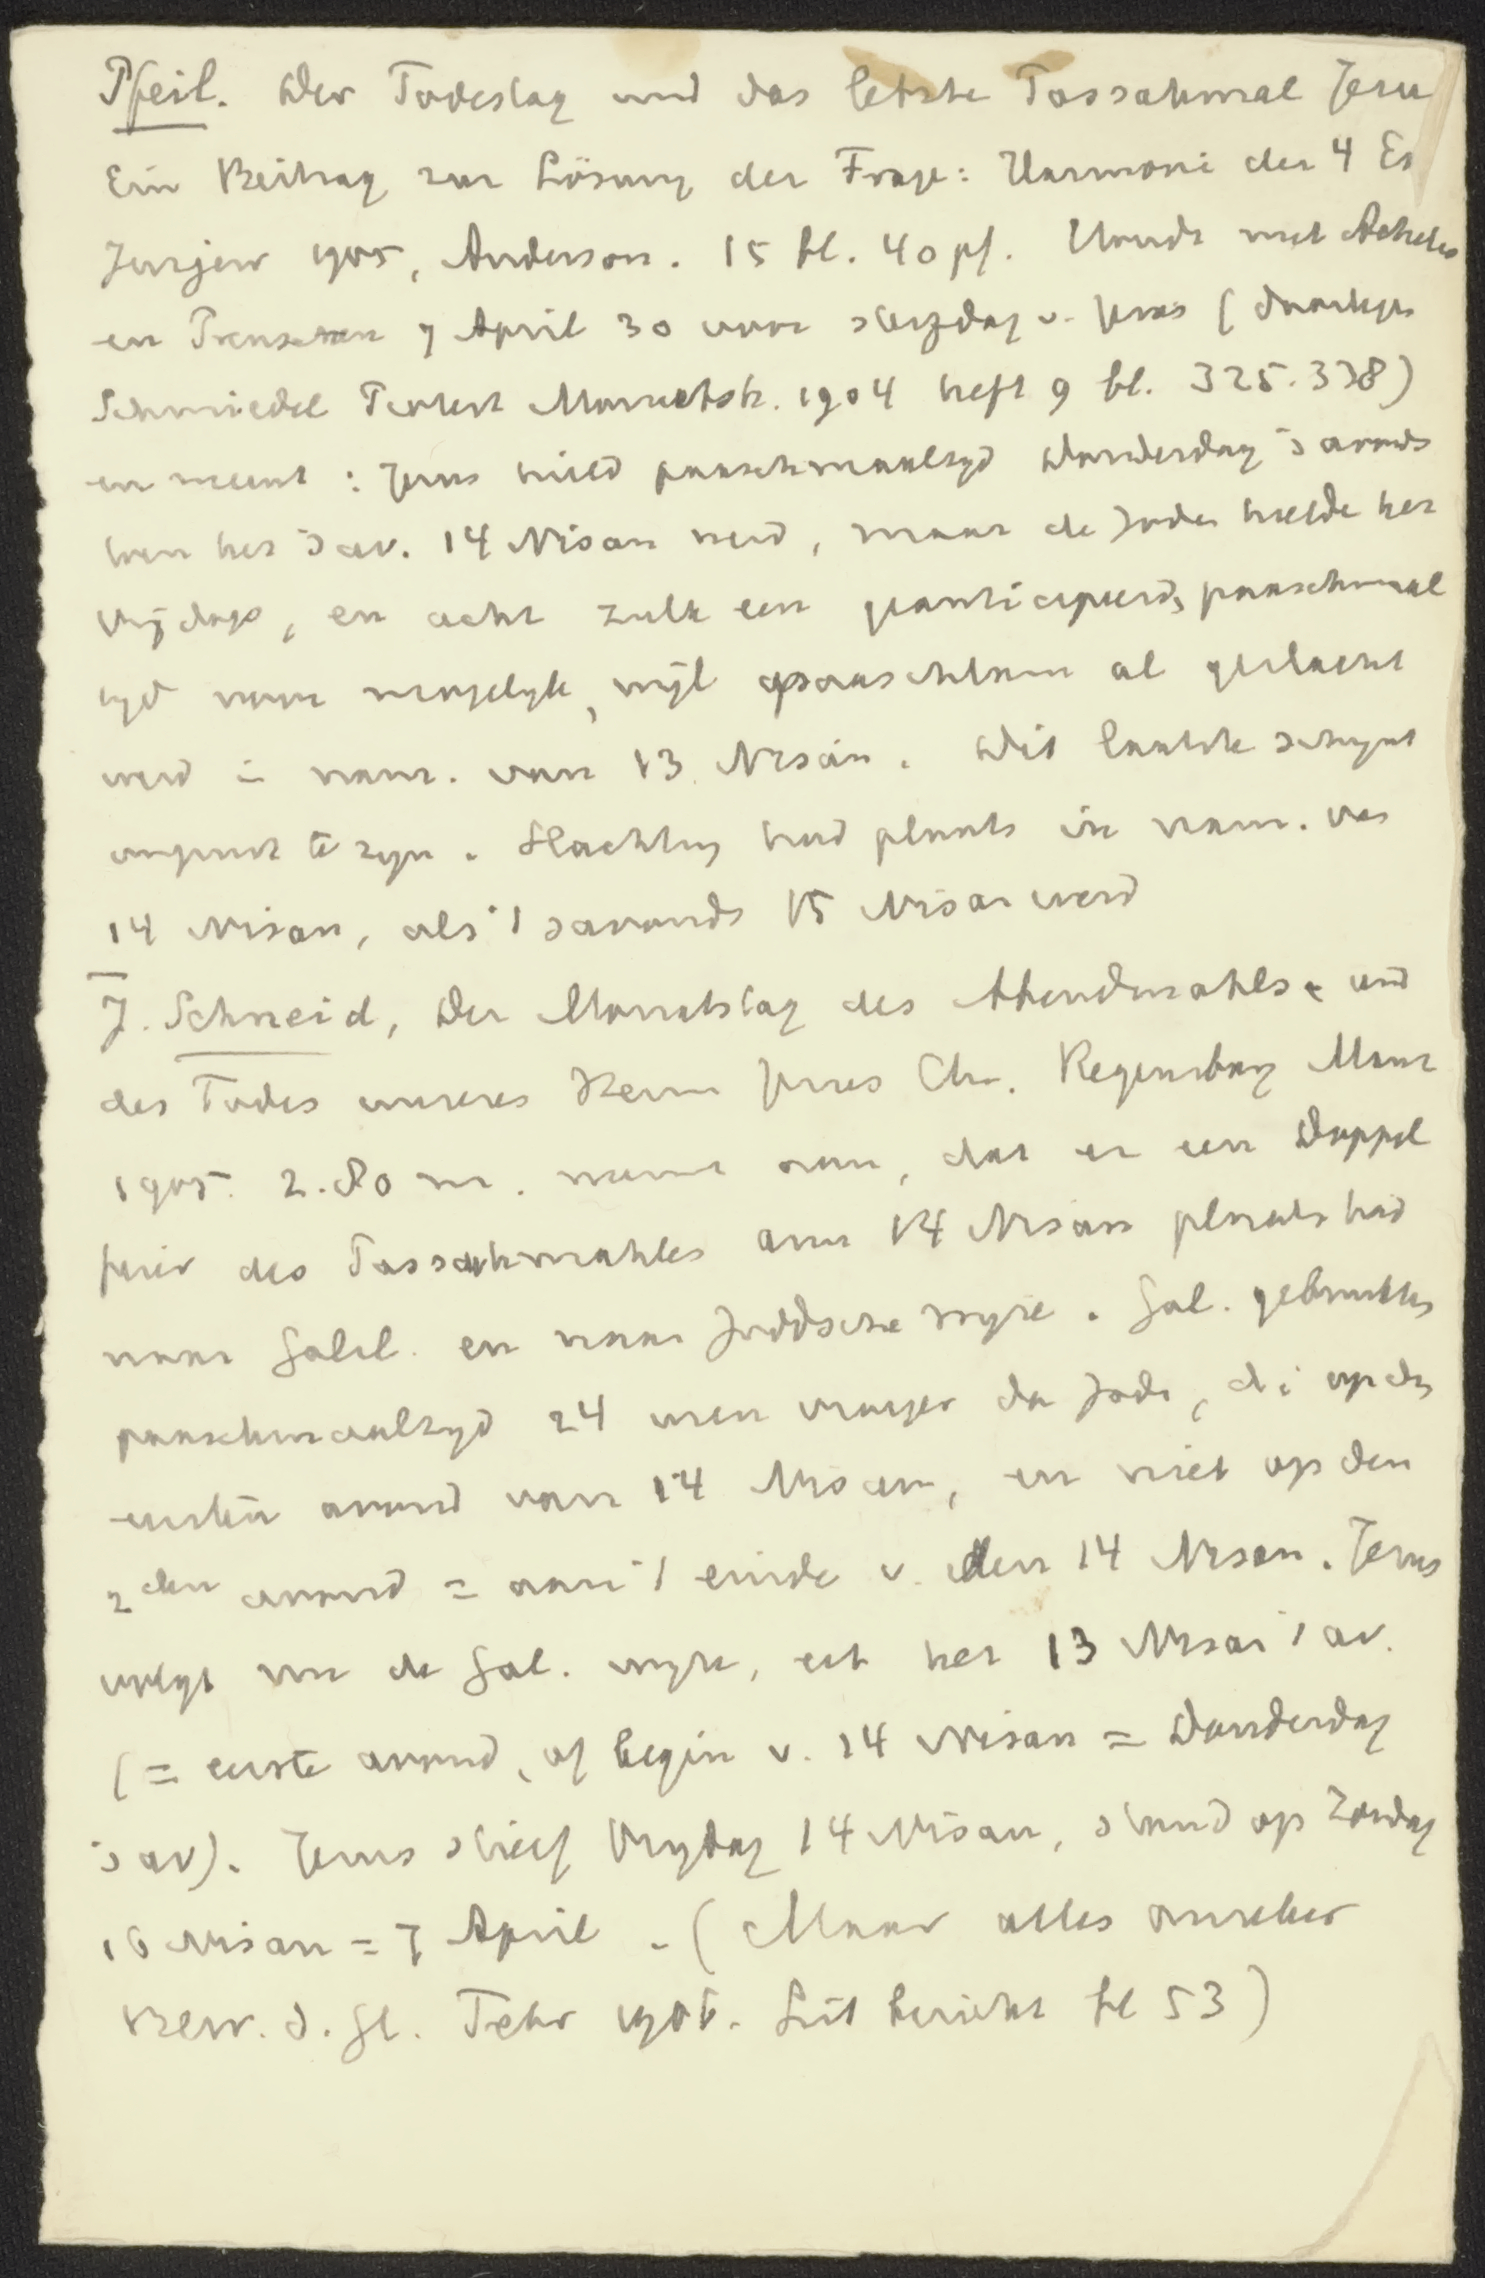 Pfeil. Der Todestag und das letzte Passahmal Jesu
Ein Beitrag zur Lösung der Frage: Harmonie der 4 Ev
Jurjew 1905, Anderson. 15 bl. 40 pf. Houdt met Achelis
en Preuschen 7 April 30 voor sterfdag v. Jezus (daartegen
Schmiedel Protest Monatsh. 1904 heft 9 bl. 325-338)
en meent: Jezus hield paaschmaaltyd Donderdag 's avonds
toen het 's av. 14 Nisan werd, maar de Joden hielde het
Vrydags, en acht zulk een geanticipeerd paaschmaal
tyd voor mogelyk, wyl paaschlam al geslacht
werd in nam. van 13 Nisan. Dit laatste schynt
onjuist te zyn. Slachting had plaats in nam. van
14 Nisan, als 't savonds 15 Nisan werd
J. Schneid, Der Monatstag des Abendmahls und
des Todes unseres Herrn Jesus Chr. Regensburg Manz
1905. 2.80 m. neemt aan, dat er een Doppel
feier des Passahmahles am 14 Nisan plaats had
naar Galil. en naar Joodsche wyze. Gal. gebruikten
paaschmaaltyd 24 uren vroeger dan Jode, d.i op den
eersten avond van 14 Nisan, en niet op den
2den avond = aan 't einde v. den 14 Nisan. Jezus
volgt nu de Gal. wyze, eet het 13 Nisan 's av.
(= eerste avond, of begin v. 14 Nisan = Donderdag
's av). Jezus stierf Vrydag 14 Nisan, stond op Zondag
16 Nisan = 7 April. (Maar alles onzeker
Bew. d. Gl. Febr 1906. Lit bericht bl 53)